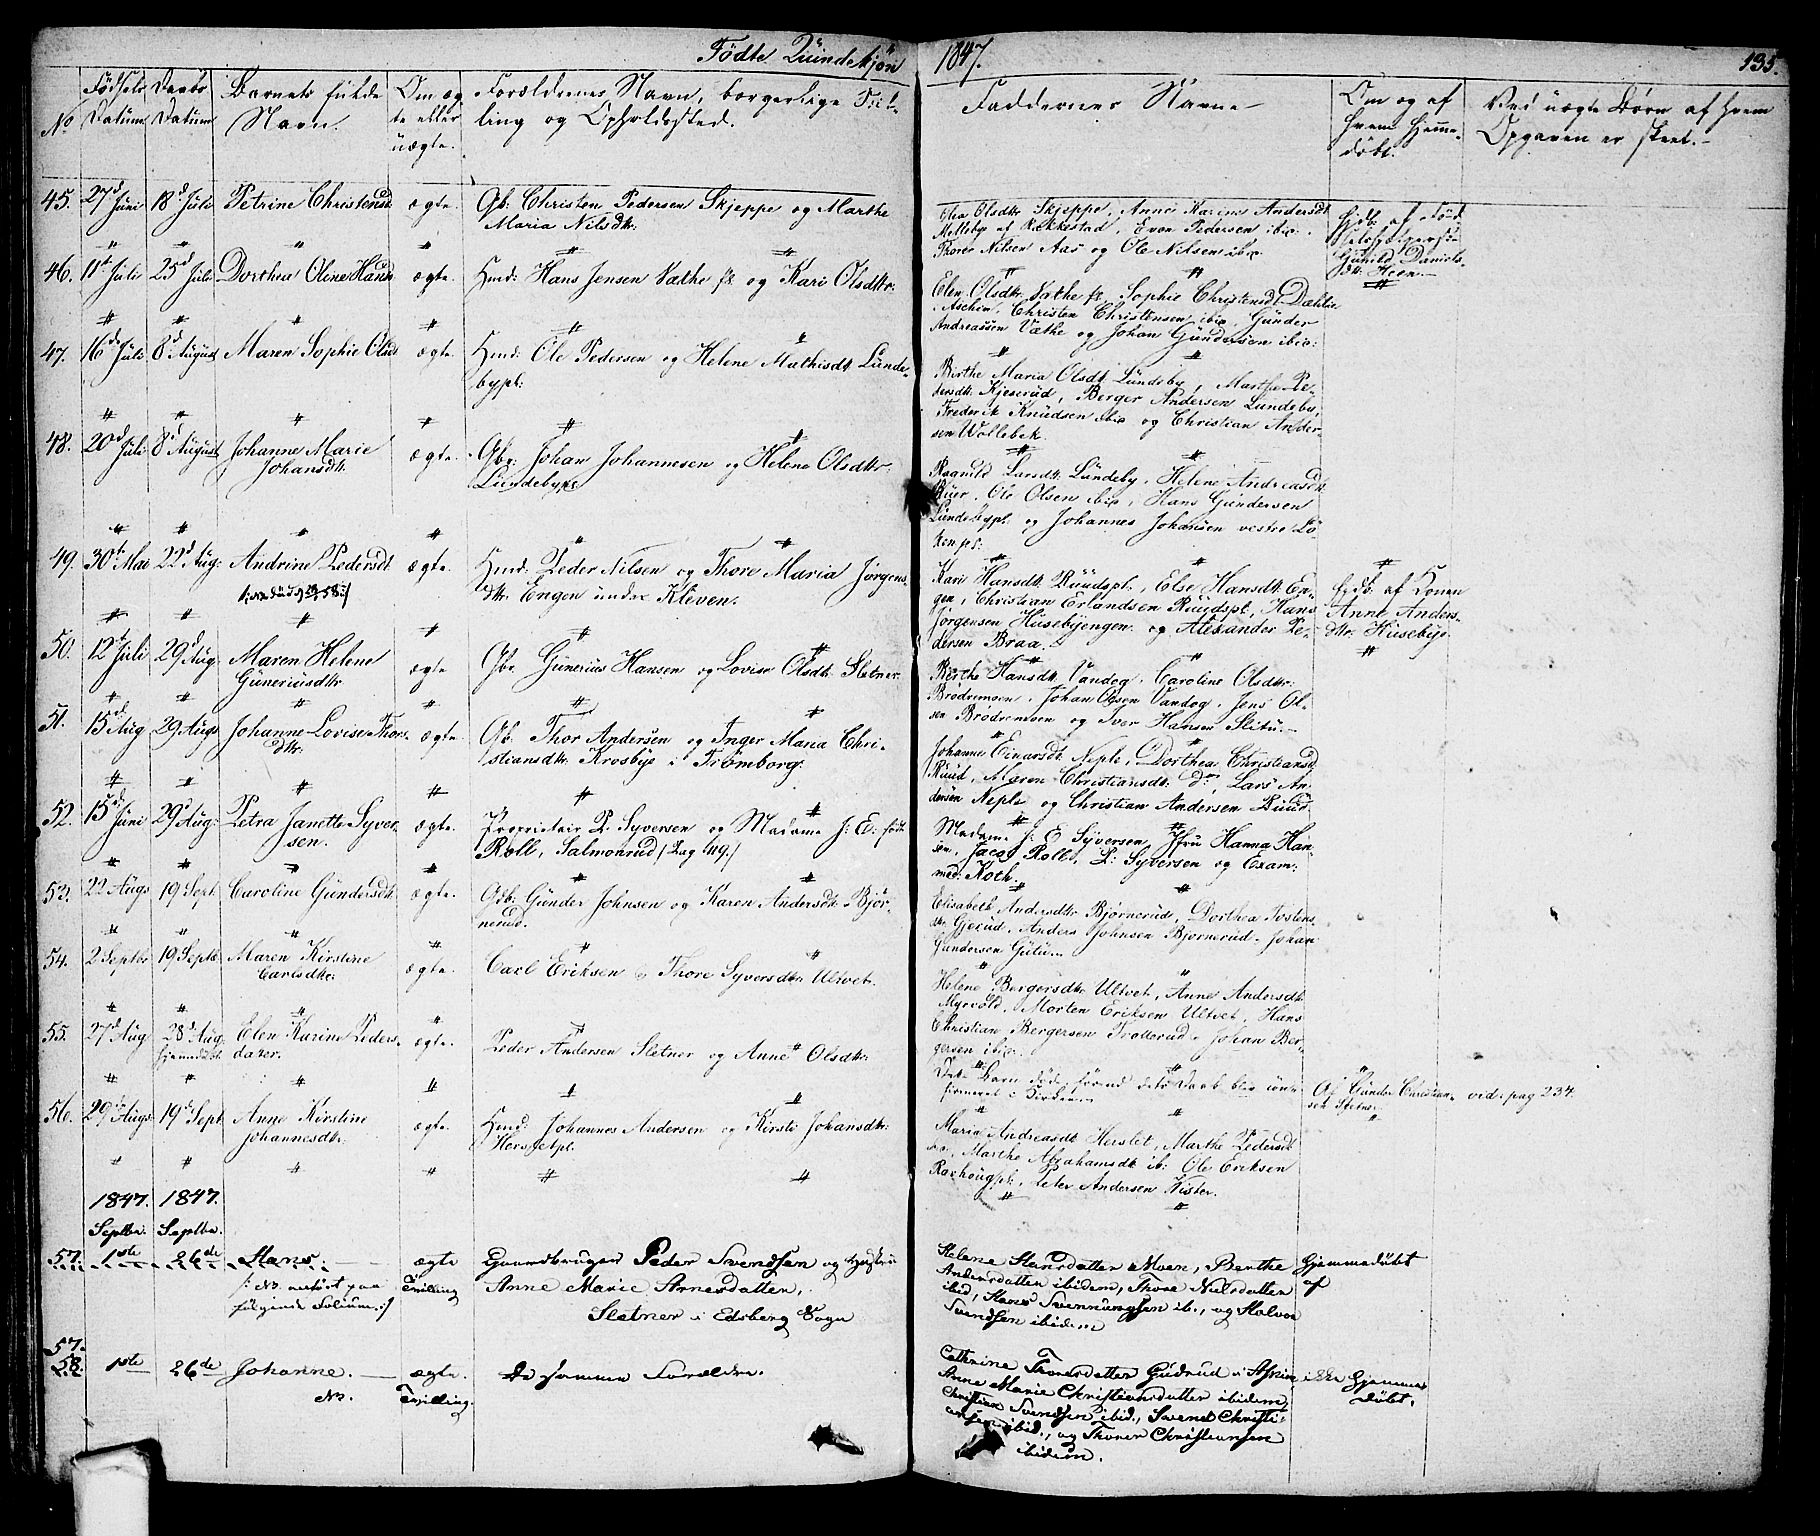 Födte Qvindekjön 1847. 135.
No
Födsels Datum
Daabs Datum
Barnets fulde Navn.
Om ægte eller uægte.
Forældrenes Navn, borgerlige Stilling og Opholdssted.
Faddernes Navne
Om og af hvem hjemmedöbt.
Ved uægte Börn af hvem Opgaven er skeet.
45. 27d Juni 18d Juli Petrine Christensd ægte. Gb: Christen Pedersen Skjeppe og Marthe
Maria Nilsdtr.
Olsdtr Skjeppe, Anne Karine Andersdt
Melleby af Rakkestad, Even Pedersen ibid.
Thorer Nilsen Aas og Ole Nilsen ibid.
Gunild Daniels-
dtr. Heen.
46. 11t Juli 25d Juli Dorthea Oline Hansd ægte. Hmd: Hans Jensen Vathe pl. og Kari Olsdtr.
Elen Olsdtr. Vathe pl. Sophie Christensdt. Dæhlie
i Aschim, Christen Christensen ibid. Günder
Andreassen Vathe og Johan Gündersen ibid:
47. 16d Juli 8d August Maren Sophie Olsd ægte. Hmd: Ole Pedersen og Helene Mathisdt. Lunde-
bypl:
Birthe Maria Olsdt. Lündeby, Marthe Pe-
dersdt. Kjeserüd, Berger Andersen Lundeby,
Frederik Knüdsen ibid og Christian Ander-
sen Wollebek.
48. 20d Juli 8d August Johanne Marie
Johansdt.
ægte. Gbr: Johan Johannesen og Helene Olsdtr.
Lündebype
Ragnild Larsdt. Lündeby, Helene Andreasdt.
Büer, Ole Olsen ibid, Hans Gündersen
Lündebypl. og Johannes Johansen vestre Lö-
kenpl:
49. 30t Mai 22d Aug: Andrine Pedersdt ægte. Hmd: Peder Nilsen og Thore Maria Jörgens
dtr. Engen under Kleven.
Kari Hansdt. Rüüdspl., Else Hansdt. En-
gen, Christian Erlandsen Ruudspl, Hans
Jörgensen Hüsebyengen og Alexander Pe-
dersen Braa.
Hjdb. af Konen
Anne Anders-
dtr. Huseby.
50. 12t Juli 29d Aug. Maren Helene
Güneriusdtr
ægte. Gbr Günerius Hansen og Lovise Olsdt. Sletner
Berthe Hansdt. Vandog, Caroline Olsdtr.
Brödremoen, Johan Olsen Vandog, Jens Ol-
sen Brödremoen og Iver Hansen Slitu.
51. 15d Aug 29 Augs Johanne Lovise Thors-
dtr.
ægte. Gb. Thor Andersen og Inger Maria Chri-
stiansdtr. Krosbye i Trömborg.
Johanne Einarsdt. Neple, Dorthea Christiansd
Ruud, Maren Christiansdt. do, Lars An-
dersen Neple og Christian Andersen Ruud.
52. 15d Juni 29d Aug: Petra Janette Syver-
sen.
ægte. Proprietair P. Syversen og Madame J: E: föd
Roll, Salmonrud (Pag 119.)
Madame J: E Syversen, Jfru Hanna Han-
sen, Jacob Roll, P: Syversen og Exam:
med: Roth.
53. 22 Augs 19 Sept. Caroline Gündersdt. ægte. Gdb: Günder Johnsen og Karen Andersdt. Björ-
nerud.
Elisabeth Andersdtr Björnerüd, Dorthea Tostens
dtr. Gjerud, Anders Johnsen Björnerud, Johan
Gundersen Gütu.
54. 2 Septbr 19 Septb. Maren Kirstine
Carlsdtr.
ægte. Carl Eriksen og Thore Syversdtr Ultvet.
Helene Bergersdtr. Ultvet, Anne Andersdt.
Myrvold, Morten Eriksen Ultvet, Hans
Christian Bergersen Trollerud, Johan Ber-
gersen ibid.
55. 27d Aug 28d Aug. Elen Karine Peders-
hjemmedöbt. dater.
ægte. Peder Andersen Sletner og Anne Olsdtr.
Dette Barn döde, förend dets Daab blev con-
firmeret i Kirken.
Af Günder Christian-
sen Sletner
vid. pag 234.
56. 29de Augs 19d Sept. Anne Kirstine
Johannesdtr.
ægte. Hmd: Johannes Andersen og Kirsti Johansdtr.
Hersletpl.
Maria Andreasdt. Herslet, Marthe Pedersdt
do, Marthe Abrahamsdt ib: Ole Eriksen
Ravhougpl., Peter Andersen Kister.
1847. 1847.
Septbr. Septbr.
57. 1ste 26de Hans.
/: NB. anfört paa
fölgende Folium. :/
ægte
Tvilling
Gaardbruger Peder Svendsen og Hustru
Anne Marie Arnesdatter,
Sletner i Edsberg Sogn
Helene Hansdatter Moen, Berthe
Andersdatter ibidem, Thore Nielsdatter
ibid, Hans Svennungsen ib., og Halvor
Svendsen ibidem
Hjemmedöbt
af
57.
58. 1ste 26de Johanne.
NB.
ægte.
Tvilling.
De samme Forældre.
Cathrine Thoresdatter Gudrud i Askim,
Anne Marie Christiansdatter ibidem,
Christian Svendsen ibid., Svend Christi-
ansen ibid., og Thorer Christiansen
ibidem.
ikke Hjemme-
döbt.